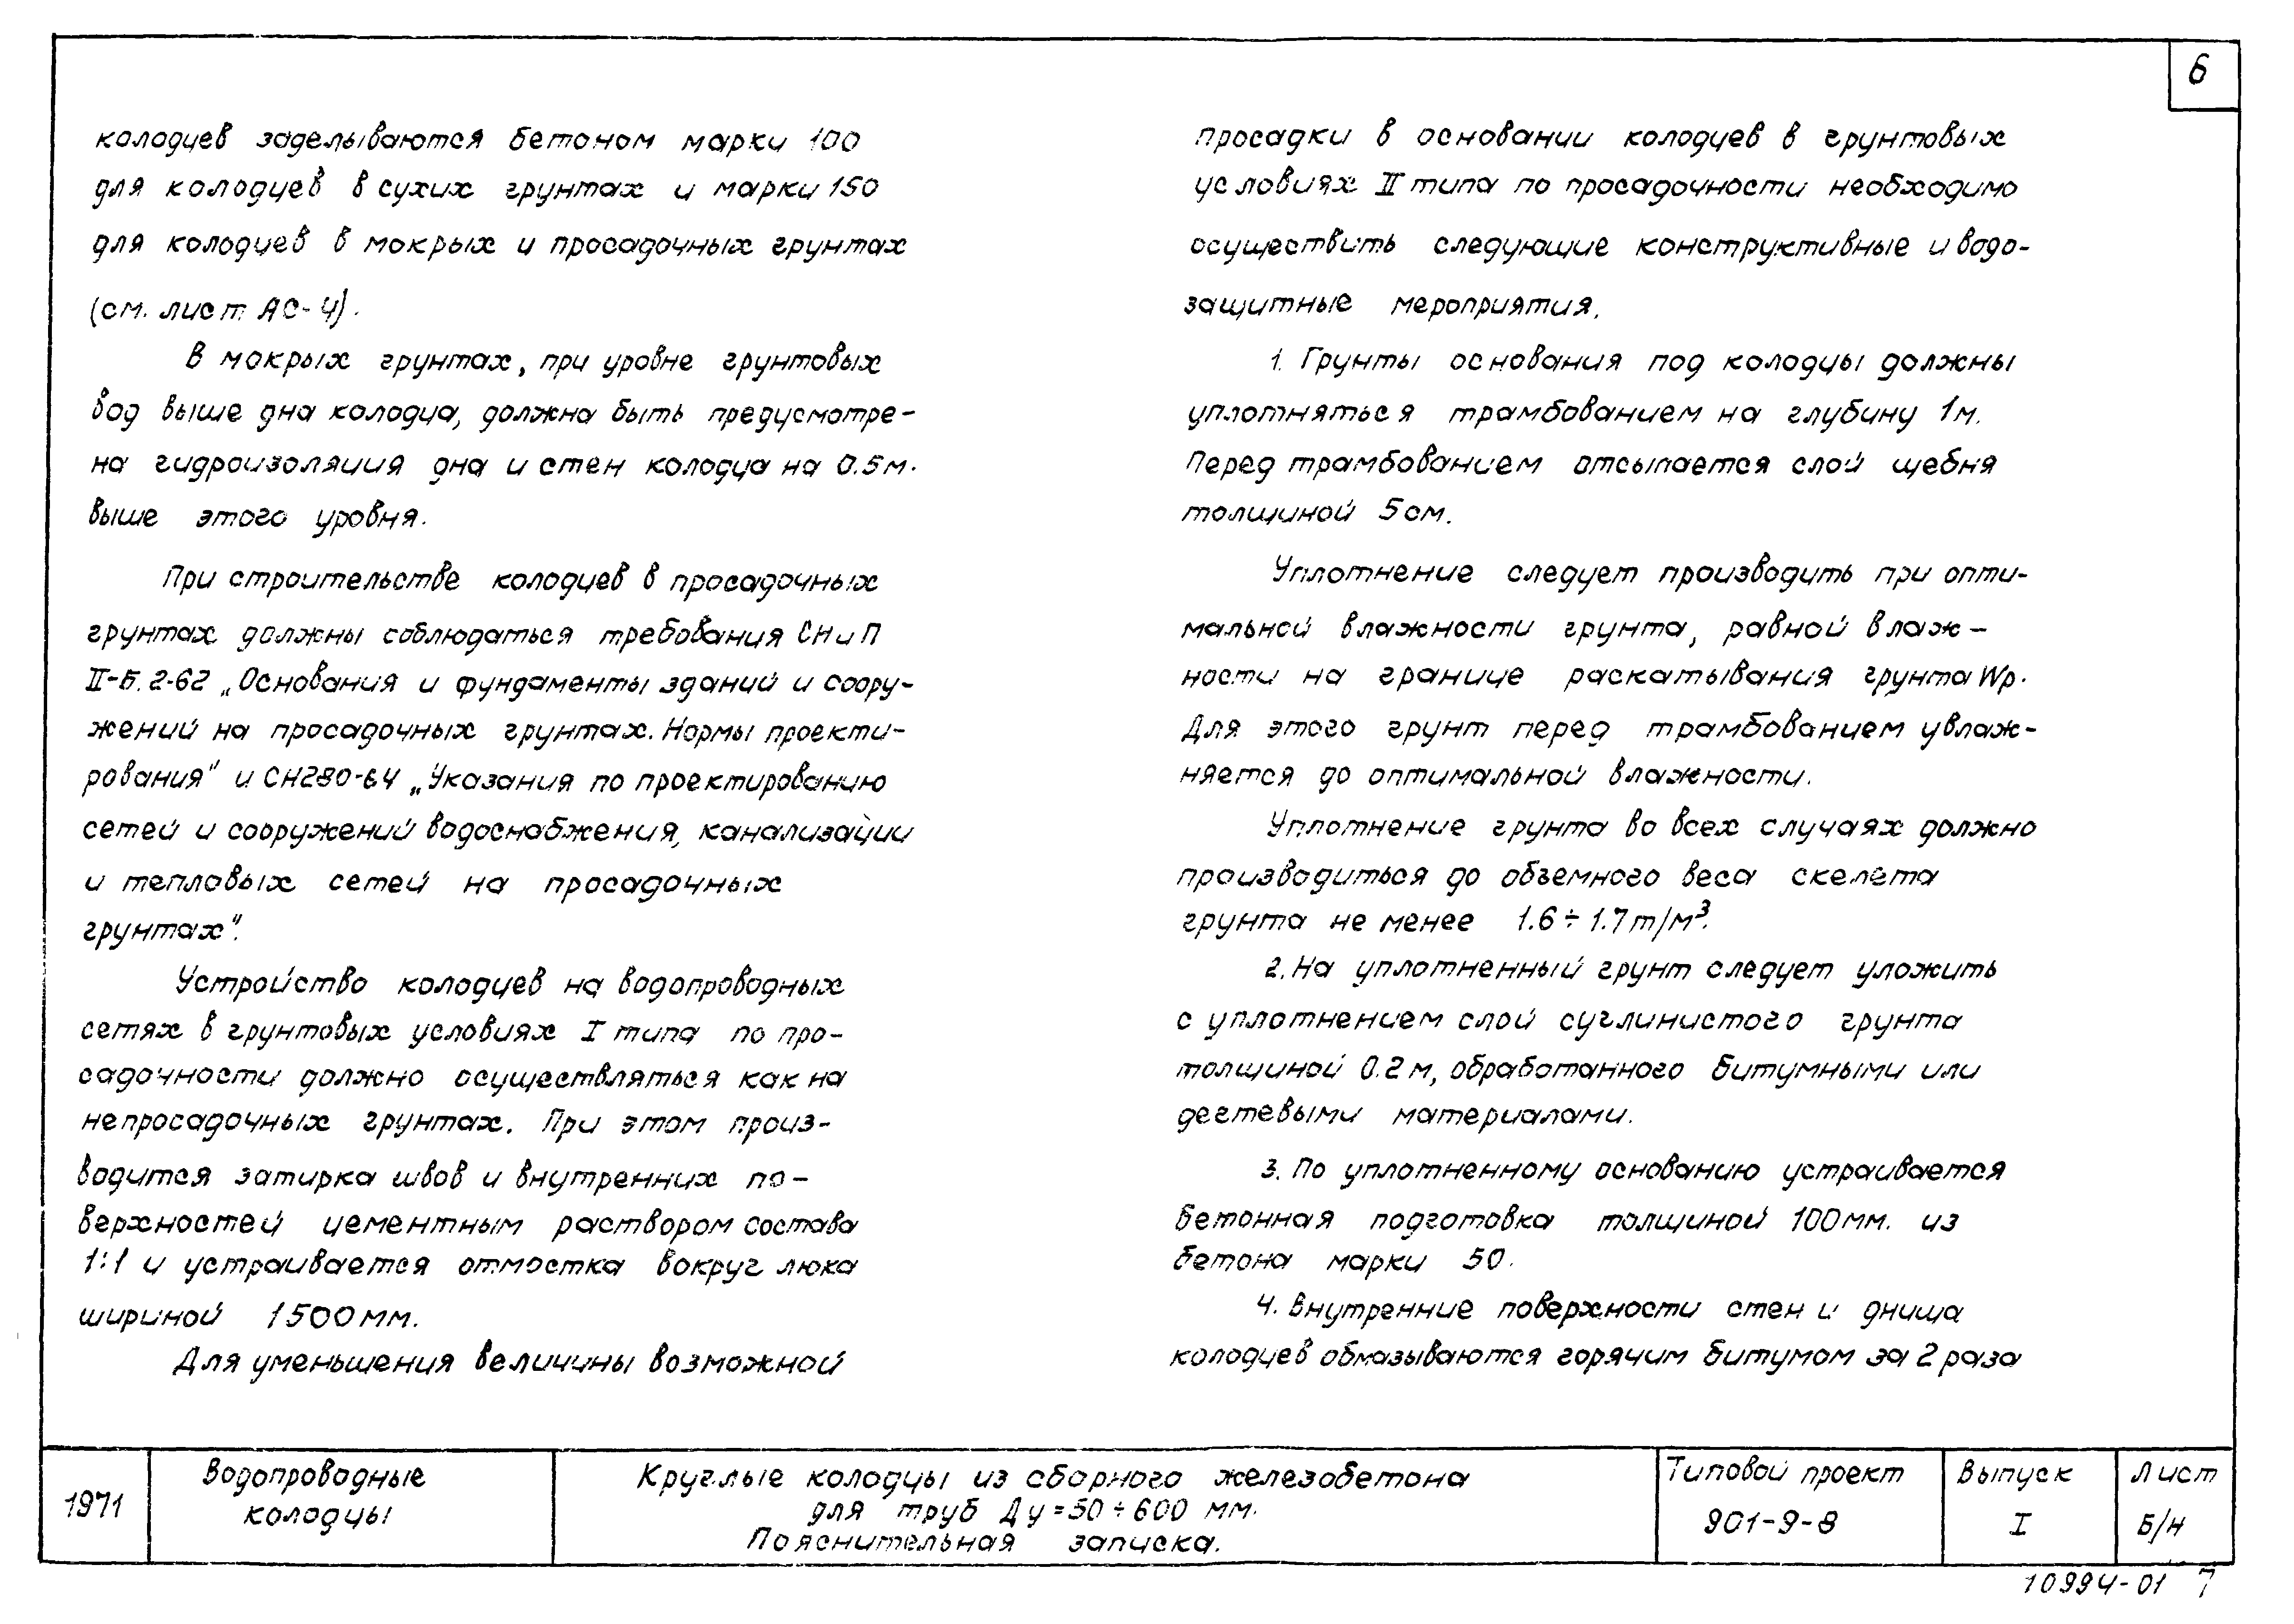 6
колодцев заделываются бетоном марки 100
для колодцев в сухих грунтах и марки 150
для колодцев в мокрых и просадочных грунтах
(см. лист АС-4).
В мокрых грунтах, при уровне грунтовых
вод выше дна колодца, должна быть предусмотре-
на гидроизоляция дна и стен колодца на 0.5м.
выше этого уровня.
При строительстве колодцев в просадочных
грунтах должны соблюдаться требования СНиП
II-Б.2-62 „Основания и фундаменты зданий и соору-
жений на просадочных грунтах. Нормы проекти-
рования" и СН280-64 „Указания по проектированию
сетей и сооружений водоснабжения, канализации
и тепловых сетей на просадочных
грунтах".
Устройство колодцев на водопроводных
сетях в грунтовых условиях I типа по про-
садочности должно осуществляться как на
непросадочных грунтах. При этом произ-
водится затирка швов и внутренних по-
верхностей цементным раствором состава
1:1 и устраивается отмостка вокруг люка
шириной 1500мм.
Для уменьшения величины возможной
просадки в основании колодцев в грунтовых
условиях II типа по просадочности необходимо
осуществить следующие конструктивные и водо-
защитные мероприятия.
1. Грунты основания под колодцы должны
уплотняться трамбованием на глубину 1м.
Перед трамбованием отсыпается слой щебня
толщиной 5см.
Уплотнение следует производить при опти-
мальной влажности грунта, равной влаж-
ности на границе раскатывания грунта Wp.
Для этого грунт перед трамбованием увлаж-
няется до оптимальной влажности.
Уплотнение грунта во всех случаях должно
производиться до объемного веса скелета
грунта не менее 1.6÷1.7т/м³.
2. На уплотненный грунт следует уложить
с уплотнением слой суглинистого грунта
толщиной 0.2м, обработанного битумными или
дегтевыми материалами.
3. По уплотненному основанию устраивается
бетонная подготовка толщиной 100мм. из
бетона марки 50.
4. Внутренние поверхности стен и днища
колодцев обмазываются горячим битумом за 2 раза
1971
Водопроводные
колодцы
Круглые колодцы из сборного железобетона
для труб Ду=50÷600 мм.
Пояснительная записка.
Типовой проект
901-9-8
Выпуск
I
Лист
Б/Н
10994-01 7